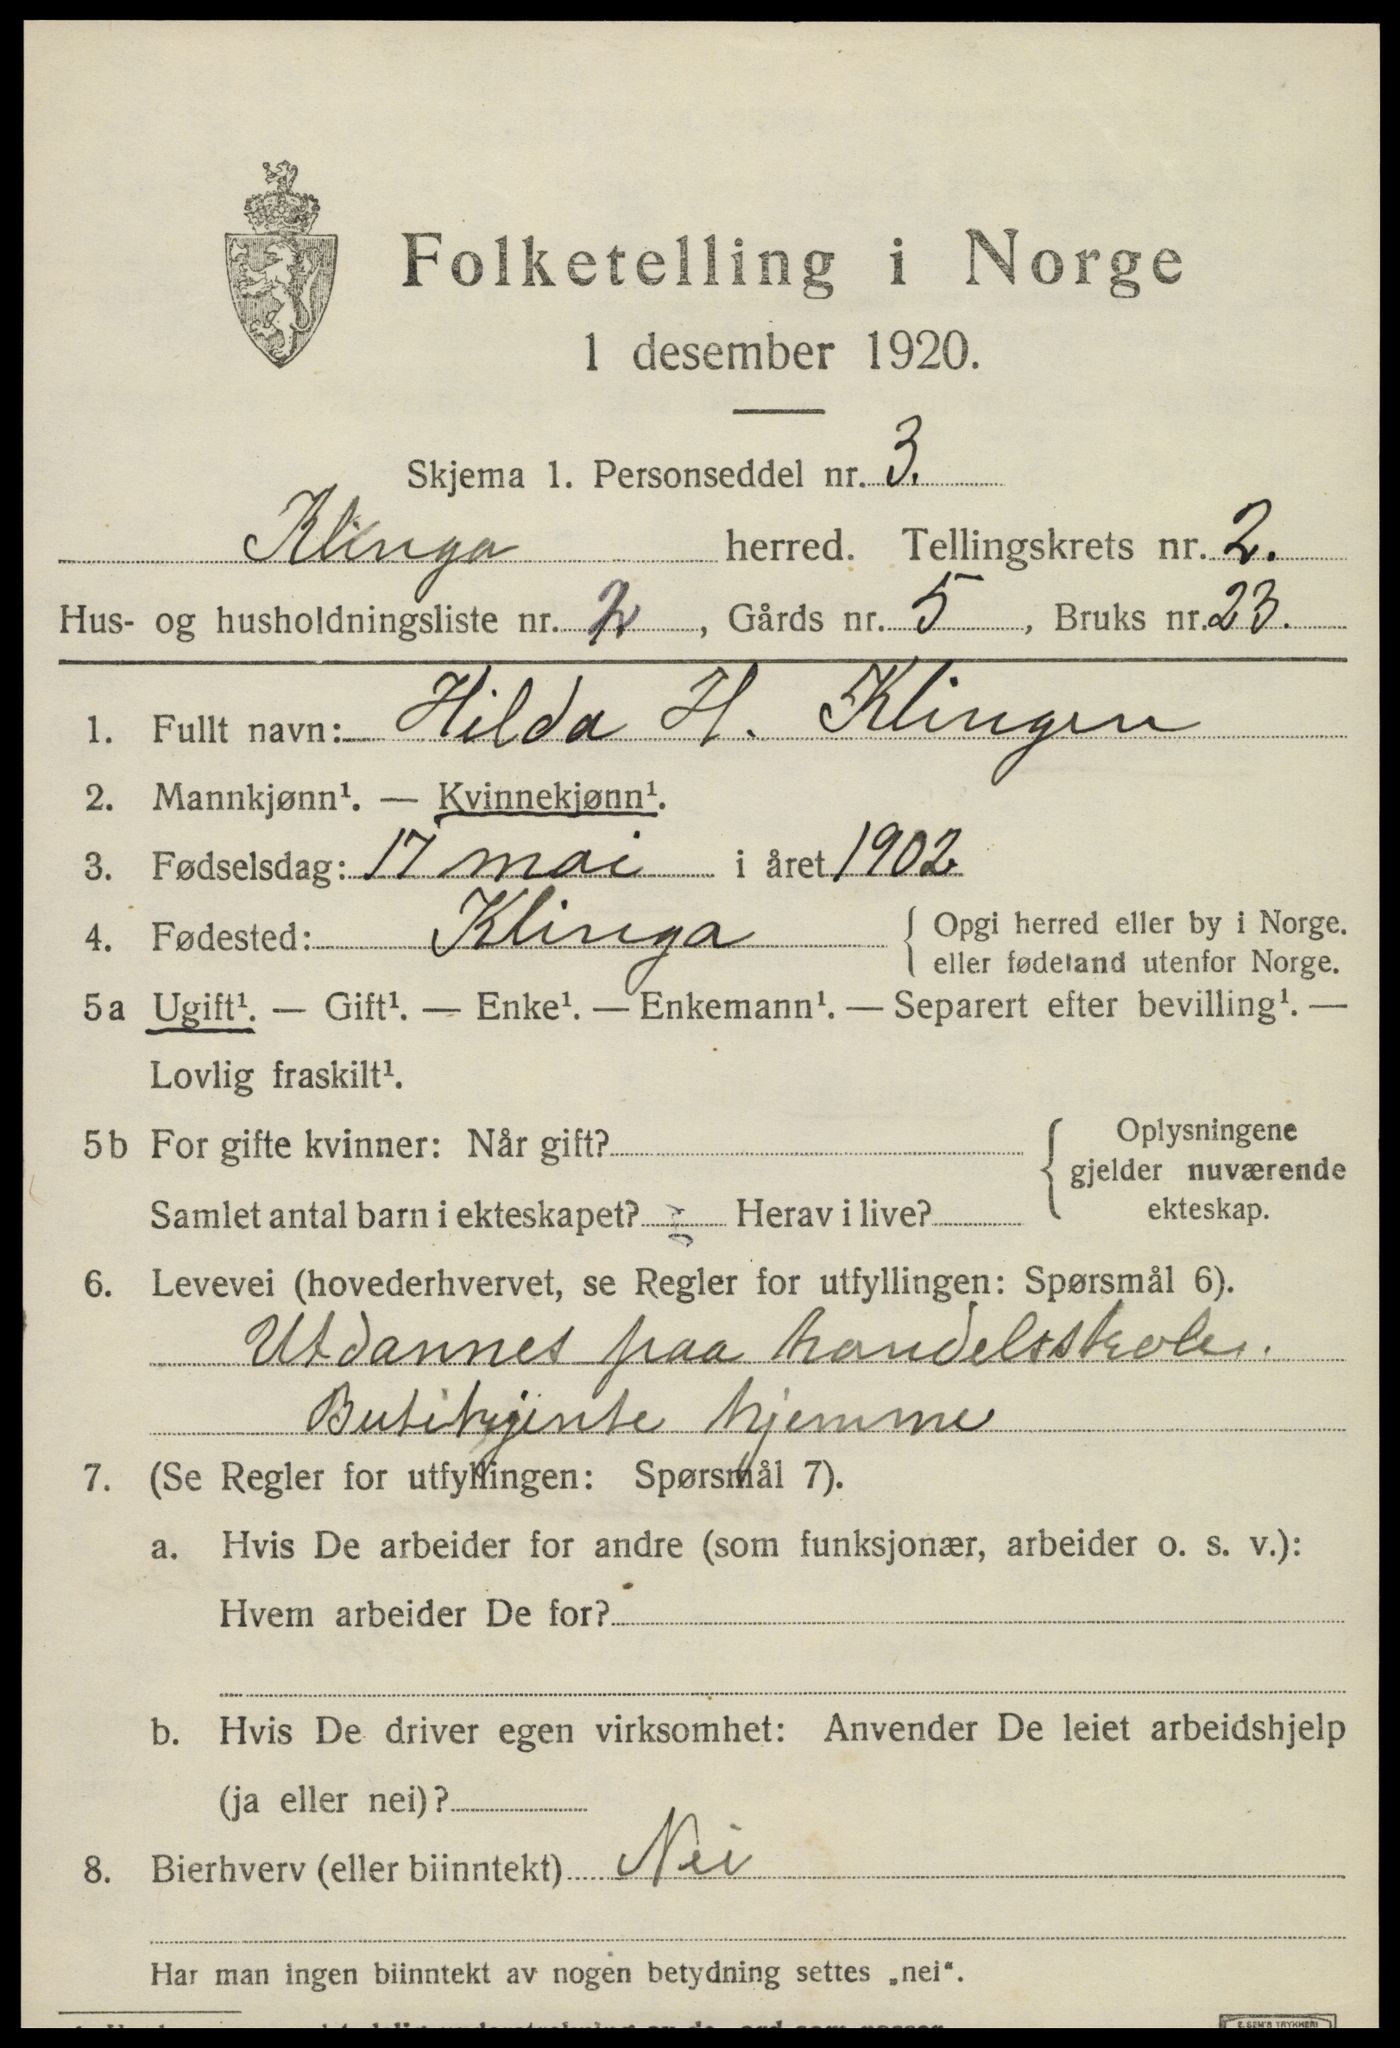 Folketelling i Norge
1 desember 1920.
Skjema 1. Personseddel nr. 3.
Klinga herred. Tellingskrets nr. 2.
Hus- og husholdningsliste nr. 2, Gårds nr. 5, Bruks nr. 23.
1. Fullt navn: Hilda H. Klingen
2. Mannkjønn¹. — Kvinnekjønn¹.
3. Fødselsdag: 17 mai i året 1902
4. Fødested: Klinga { Opgi herred eller by i Norge.
eller fødeland utenfor Norge.
5a Ugift¹. — Gift¹. — Enke¹. — Enkemann¹. — Separert efter bevilling¹. —
Lovlig fraskilt¹.
5b For gifte kvinner: Når gift? { Oplysningene
gjelder nuværende
ekteskap.
Samlet antal barn i ekteskapet? Herav i live?
6. Levevei (hovederhvervet, se Regler for utfyllingen: Spørsmål 6).
Utdannes paa handelsskole.
Butikjente hjemme
7. (Se Regler for utfyllingen: Spørsmål 7).
a. Hvis De arbeider for andre (som funksjonær, arbeider o. s. v.):
Hvem arbeider De for?
b. Hvis De driver egen virksomhet: Anvender De leiet arbeidshjelp
(ja eller nei)?
8. Bierhverv (eller biinntekt) Nei
Har man ingen biinntekt av nogen betydning settes „nei“.